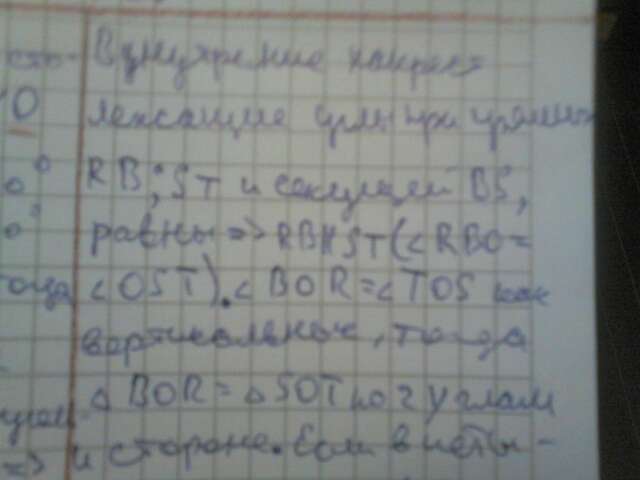 Внутренние накрест
О лежащие углы при прямых
0° RB; ST и секущей BS,
0° равны => RB||ST(<RBO=
<OST). <BOR=<TOS как
вертикальные, тогда
△BOR=△SOT по 2 углам
=> и стороне. Если в четы-